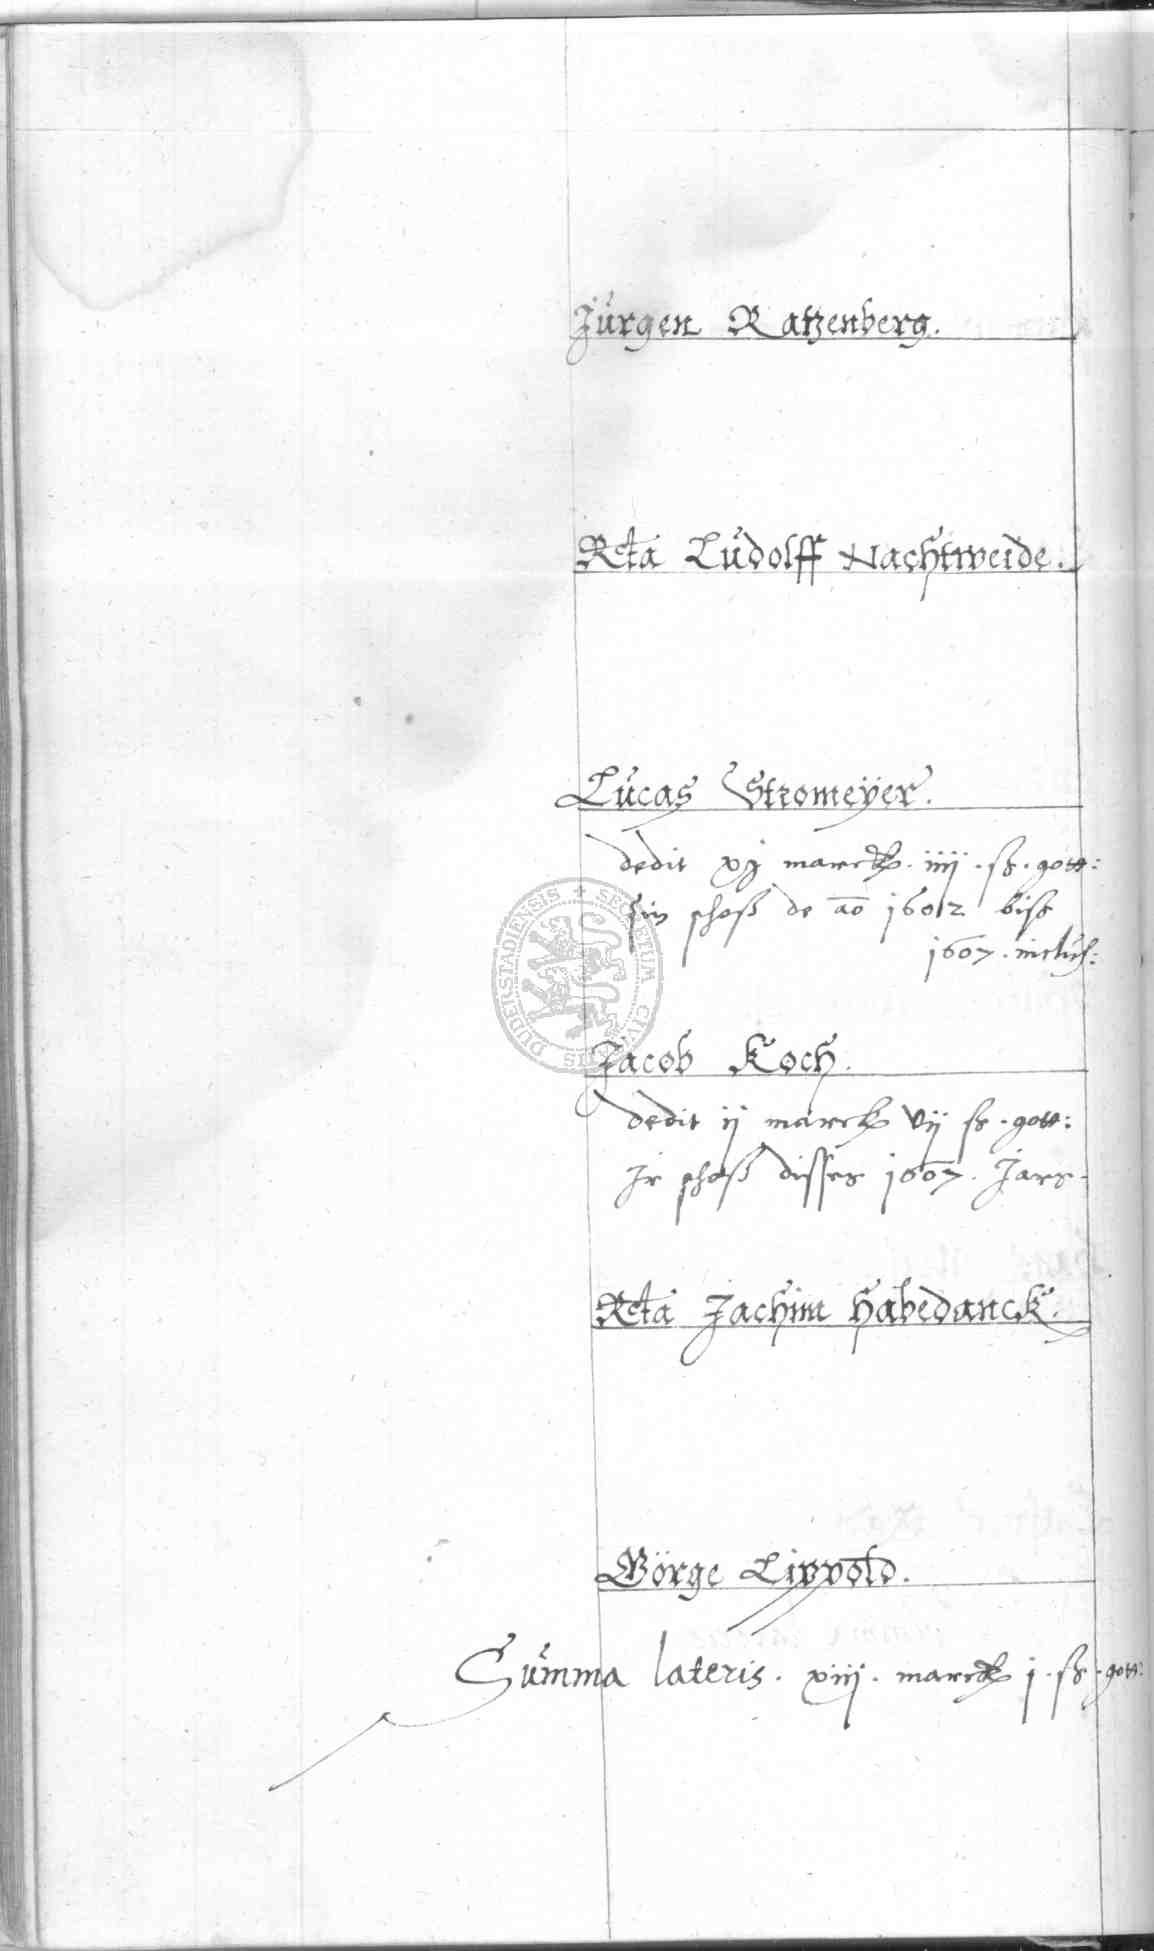 Jürgen Ratzenberg.
Rcta Lüdolff Nachtweide.
Lücas Stromeÿer.
dedit xj marck. iiij. ß. gott:
sin schoß de ao 1602 biß
1607. inclus:
SECRETUM CIVITATIS DUDERSTADIENSIS
Jacob Koch.
dedit ij marck vij ß. gott:
Jr schoß disses 1607. Jars.
Rcta Jachim Habedanck.
Görge Lippold.
Summa lateris. xiij. marck j. ß. gott: